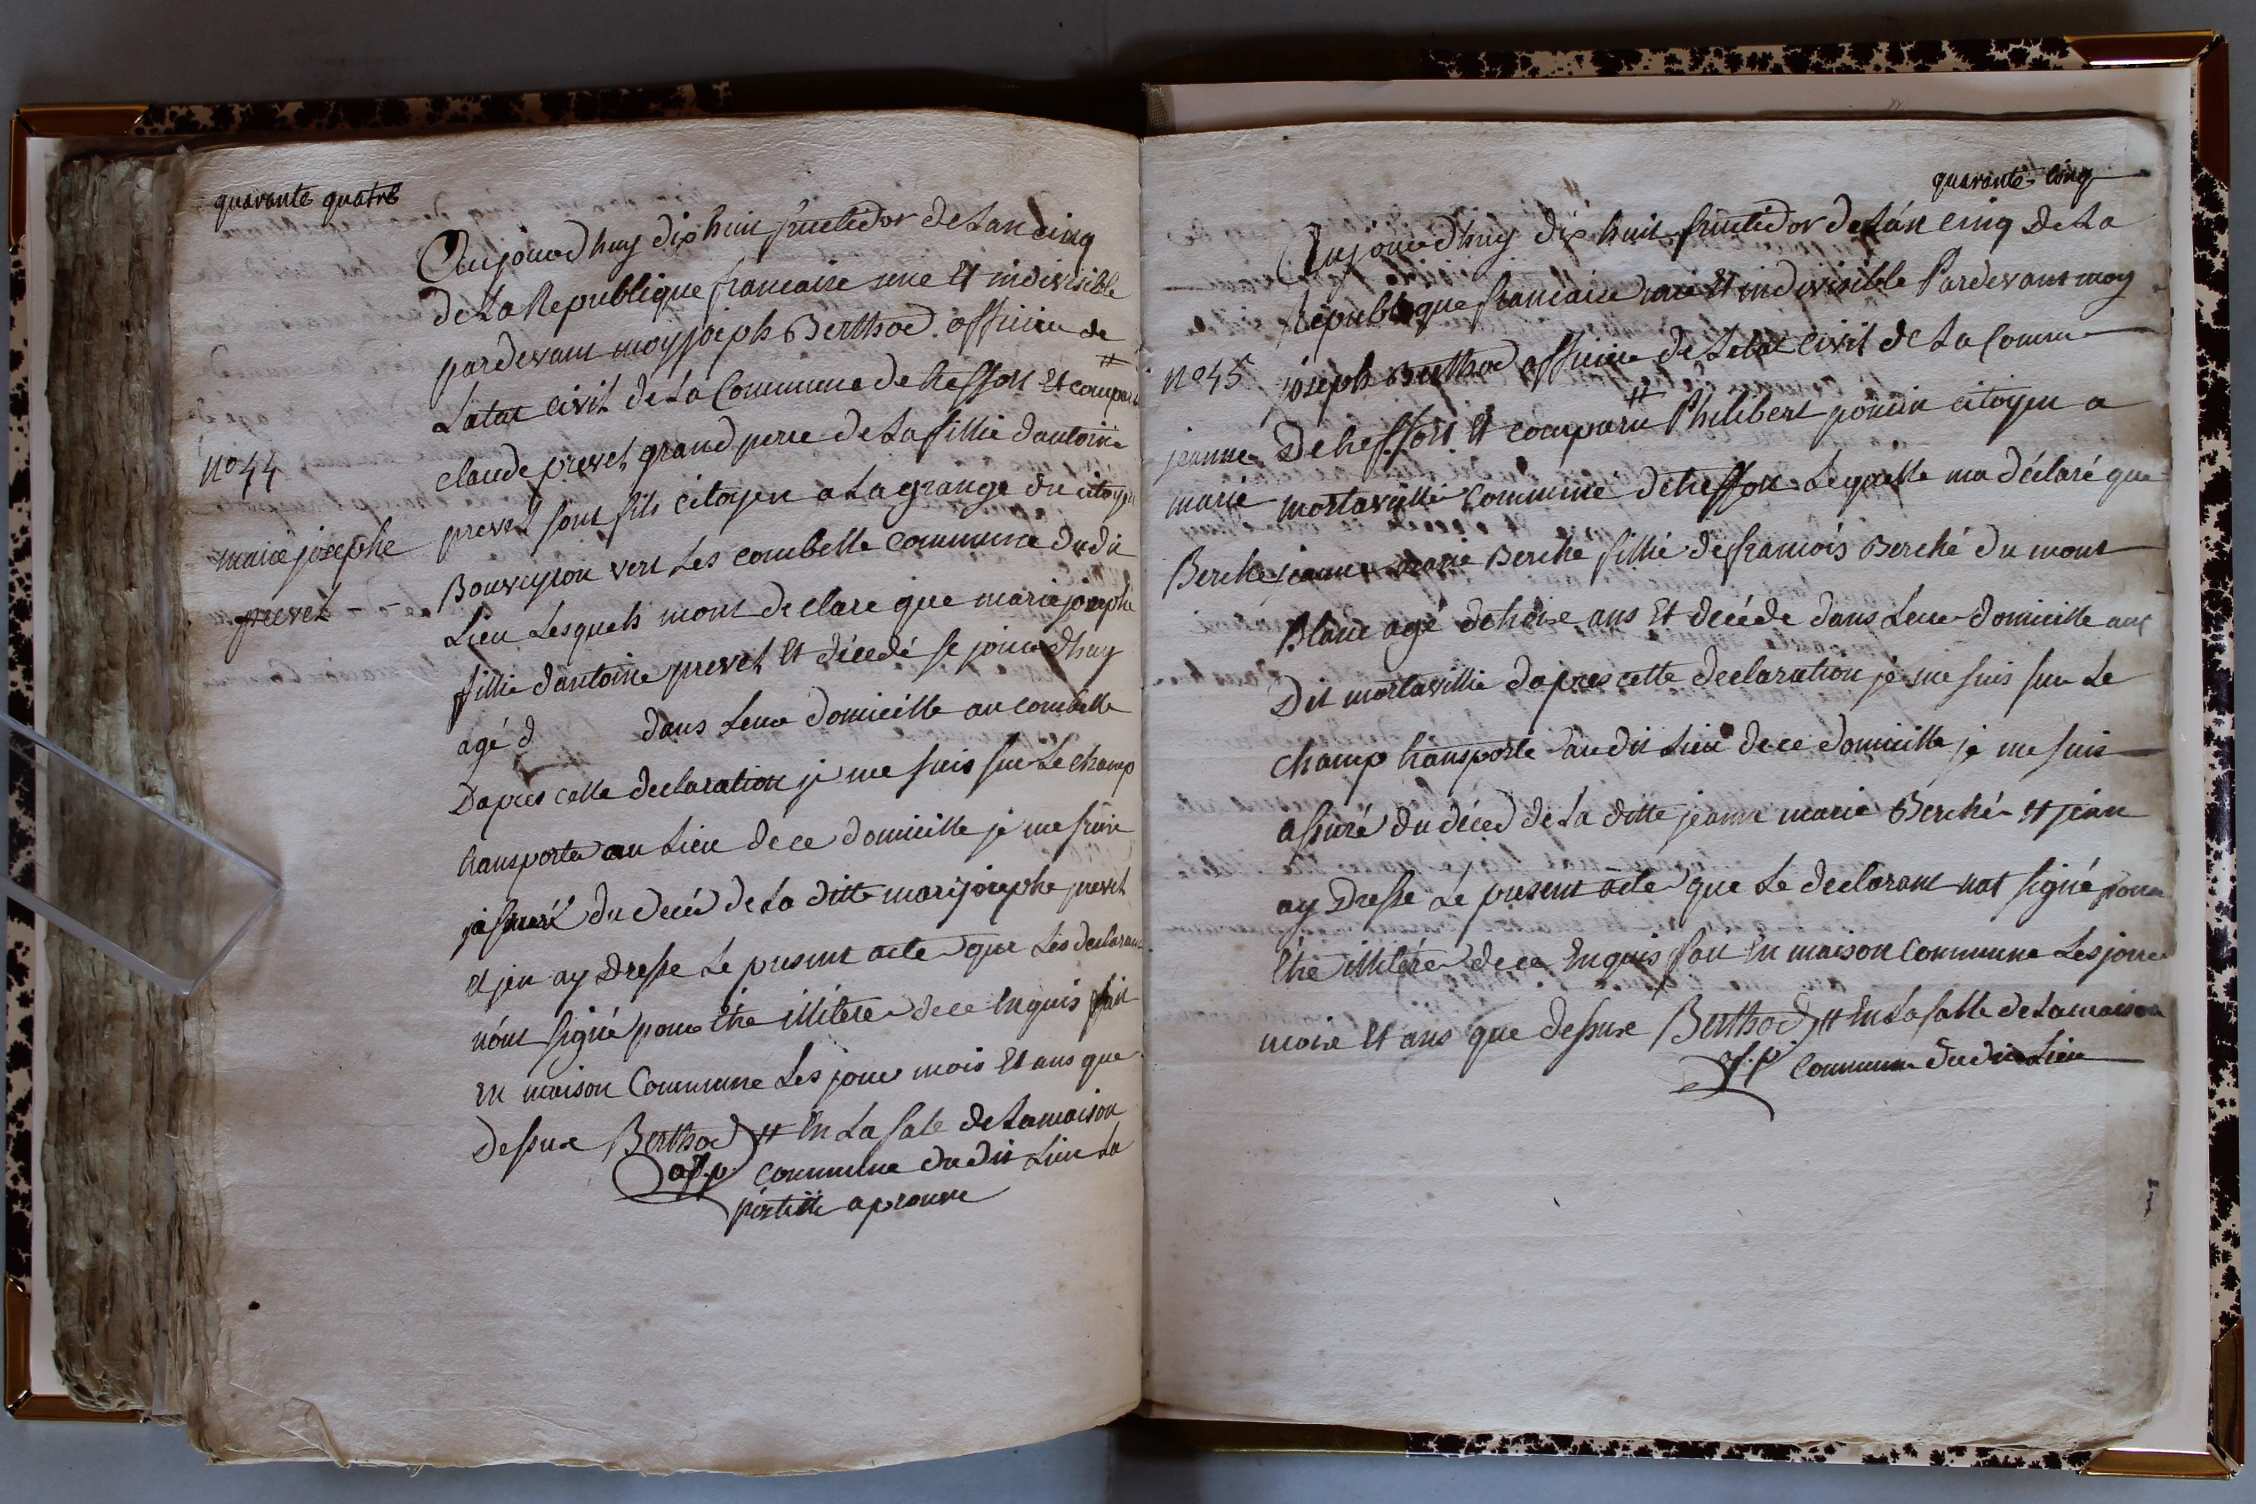 quarante quatre
Aujourdhuy dix huit fructidor de Lan cinq
de La Republique francaise une Et indivisible
pardevant moy joseph Berthod officier de
Latat civil de La Commune de treffort Et comparu #
claude prevel grand pere de La fillie dantoine
prevel sont fils citoyen a La grange du citoyen
Bouveyron vert Les combelle commune du dit
Lieu Lesquels mont declare que marie josephe
fillie dantoine prevel Et décedé se jourdhuy
agé d dans Leur domicille au combelle
Dapres cette declaration je me suis sur Le champ
transporter au Lieu de ce domicille je me suis
assuré du decéd de La ditte marijosephe prevel
Et jen ay Dresse Le present acte que Les declarant
nont signé pour Etre illitere de ce Enquis fait
En maison Commune Les jour mois Et ans que
dessure Berthod # En La sale de La maison
off. p. commune du dit Lieu La
aprouve
No 44
marie josephe
prevel
quarante cinq
Aujourdhuy dix huit fructidor de Lan cinq de La
République francaise une Et indivisible Pardevant moy
joseph Berthod officier de Letat civil de La Commune
De treffort Et comparu # Philibert poncin citoyen a
mortaville Commune de treffort Lequelle ma déclaré que
jeanne marie Berche fillie de francois Berché du mont
Blanc agé de treise ans Et decéde dans Leur domicille aux
Dit mortavillie dapres cette declaration je me suis sur Le
champ transporte au dit Lieu de ce domicille je me suis
assuré du déced de La ditte jeanne marie Berché Et jean
ay Dresse Le present acte que Le declarant nat signé pour
Etre illitére de ce Enquis fait En maison commune Les jour
mois Et ans que dessure Berthod # En La salle de La maison
off. p. Commune du dit Lieu
No 45
jeanne
marie
Berche